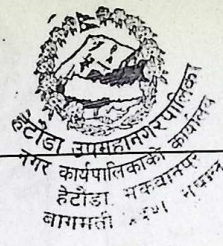 हेटौंडा उपमहानगरपालिका
नगर कार्यपालिकाको कार्यालय
हेटौंडा, मकवानपुर
बागमती प्रदेश